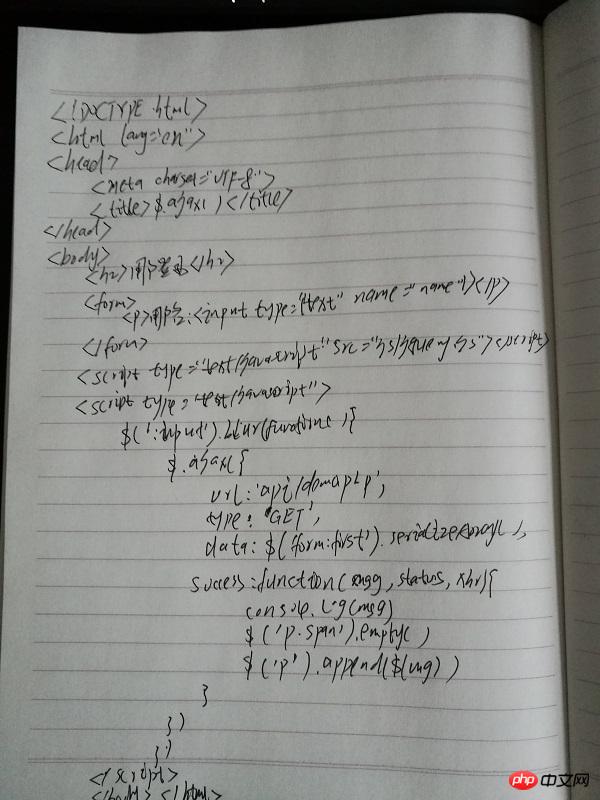 <!DOCTYPE html>
<html lang="en">
<head>
<meta charset="UTF-8">
<title>$.ajax()</title>
</head>
<body>
<h2>用户登录</h2>
<form>
<p>用户名:<input type="text" name="name"></p>
</form>
<script type="text/javascript" src="js/jquery.js"></script>
<script type="text/javascript">
$(':input').blur(function(){
$.ajax({
url:'api/
type:'GET',
data:$('form:first').serializeArray(),
success:function(msg,status,xhr){
console.log(msg)
$('p.span').empty()
$('p').append($(msg))
}
})
})
</script>
</body></html>
php中文网